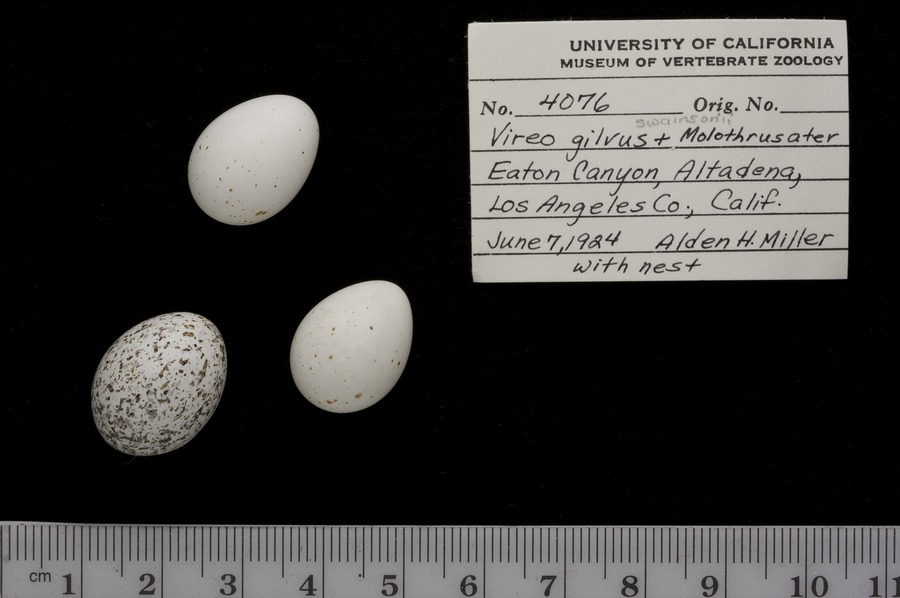 UNIVERSITY OF CALIFORNIA
MUSEUM OF VERTEBRATE ZOOLOGY
No. 4076 Orig. No.
swainsonii
Vireo gilvus + Molothrus ater
Eaton Canyon, Altadena,
Los Angeles Co., Calif.
June 7, 1924 Alden H. Miller
with nest
cm 1 2 3 4 5 6 7 8 9 10 11